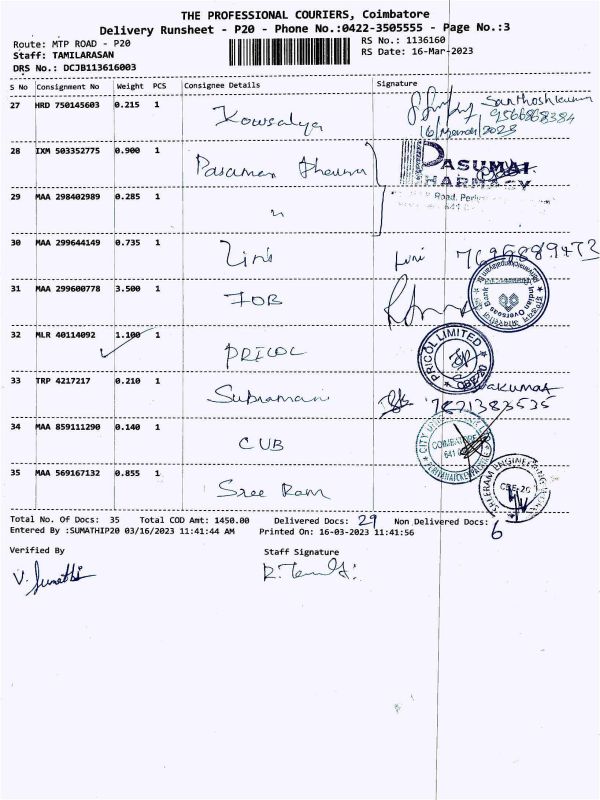 THE PROFESSIONAL COURIERS, Coimbatore
Delivery Runsheet - P20 - Phone No.:0422-3505555 - Page No.:3
Route: MTP ROAD - P20
RS No.: 1136160
Staff: TAMILARASAN
RS Date: 16-Mar-2023
DRS No.: DCJB113616003
S No Consignment No Weight PCS Consignee Details Signature
27 HRD 750145603 0.215 1 Kowsalya Santhoshkumar
9566868384
16/March/2023
28 IXM 503352775 0.900 1 PASUMAI
PHARMACY
Road,
29 MAA 298402989 0.285 1 "
30 MAA 299644149 0.735 1
31 MAA 299600778 3.500 1 IOB
Indian Overseas Bank
32 MLR 40114092 1.100 1 PRICOL
PRICOL LIMITED
CBE-20
33 TRP 4217217 0.210 1 Subramani
34 MAA 859111290 0.140 1 CUB
COIMBATORE
35 MAA 569167132 0.855 1 Sree Ram
SREERAM ENGINEERING
CBE-20
Total No. Of Docs: 35 Total COD Amt: 1450.00 Delivered Docs: 29 Non Delivered Docs: 6
Entered By :SUMATHIP20 03/16/2023 11:41:44 AM Printed On: 16-03-2023 11:41:56
Verified By Staff Signature
V. Sumathi